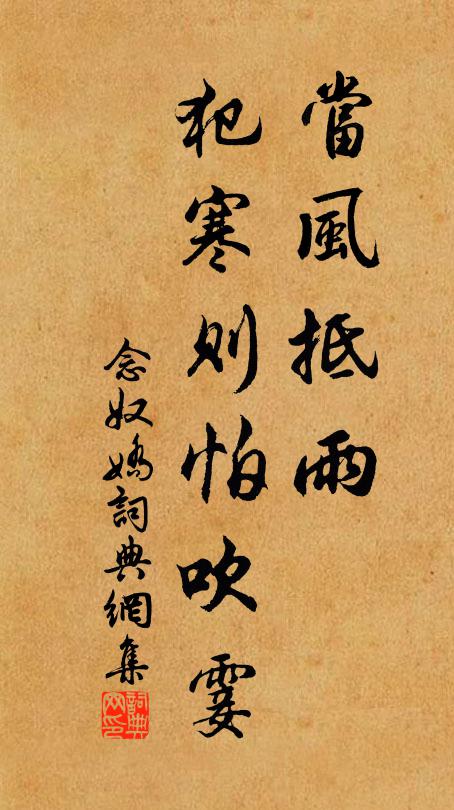 當風抵雨
犯寒則怕吹霎
念奴嬌詞典網集
詞典网印